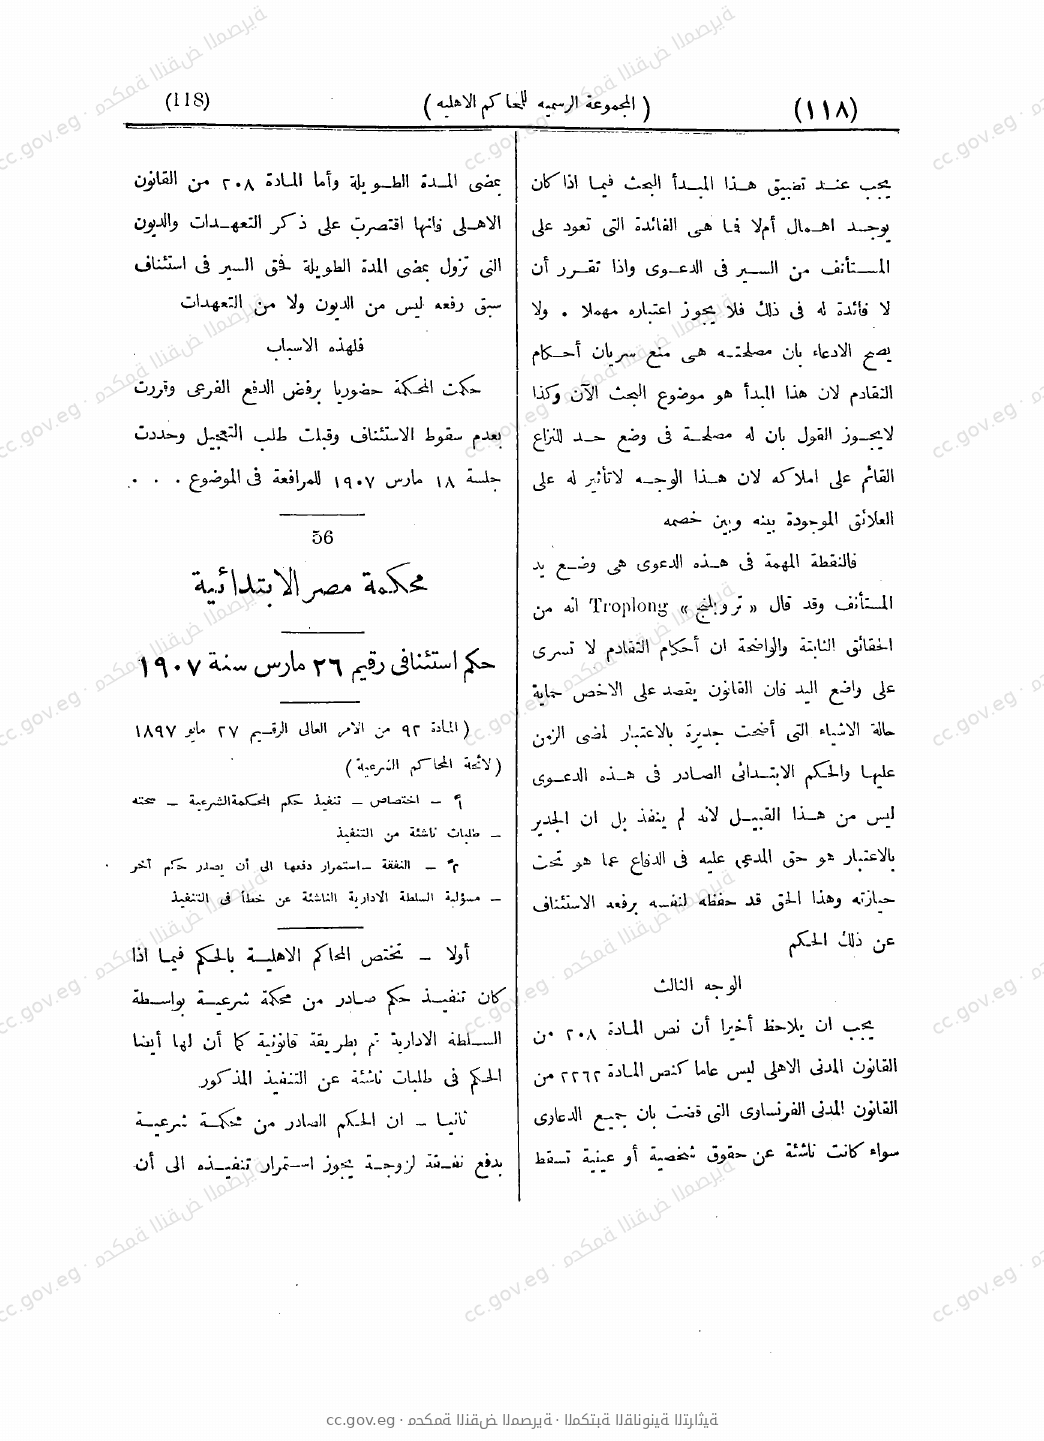 (١١٨) (المجموعة الرسمية للمحاكم الاهلية) (118)
يجب عند تضييق هذا المبدأ البحث فيما اذا كان
يوجد اهمال أم لا فما هى الفائدة التى تعود على
المستأنف من السير فى الدعوى واذا تقرر أن
لا فائدة له فى ذلك فلا يجوز اعتباره مهملا . ولا
يصح الادعاء بان مصلحته هى منع سريان أحكام
التقادم لان هذا المبدأ هو موضوع البحث الآن وكذا
لايجوز القول بان له مصلحة فى وضع حد للنزاع
القائم على املاكه لان هذا الوجه لاتأثير له على
العلائق الموجودة بينه وبين خصمه
فالنقطة المهمة فى هذه الدعوى هى وضع يد
المستأنف وقد قال « تروبلنج » Troplong انه من
الحقائق الثابتة والواضحة ان أحكام التقادم لا تسرى
على واضع اليد فان القانون يقصد على الاخص حماية
حالة الاشياء التى أضحت جديرة بالاعتبار لمضى الزمن
عليها والحكم الابتدائى الصادر فى هذه الدعوى
ليس من هذا القبيل لانه لم ينفذ بل ان الجدير
بالاعتبار هو حق المدعى عليه فى الدفاع عما هو تحت
حيازته وهذا الحق قد حفظه لنفسه برفعه الاستئناف
عن ذلك الحكم
الوجه الثالث
يجب ان يلاحظ أخيرا أن نص المادة ٢٠٨ من
القانون المدنى الاهلى ليس عاما كنص المادة ٢٢٦٢ من
القانون المدنى الفرنساوى التى قضت بان جميع الدعاوى
سواء كانت ناشئة عن حقوق شخصية أو عينية تسقط
بمضى المدة الطويلة وأما المادة ٢٠٨ من القانون
الاهلى فانها اقتصرت على ذكر التعهدات والديون
التى تزول بمضى المدة الطويلة فحق السير فى استئناف
سبق رفعه ليس من الديون ولا من التعهدات
فلهذه الاسباب
حكمت المحكمة حضوريا برفض الدفع الفرعى وقررت
بعدم سقوط الاستئناف وقبلت طلب التعجيل وحددت
جلسة ١٨ مارس ١٩٠٧ للمرافعة فى الموضوع . . .
56
محكمة مصر الابتدائية
حكم استئنافى رقيم ٢٦ مارس سنة ١٩٠٧
(المادة ٩٢ من الامر العالى الرقيم ٢٧ مايو ١٨٩٧
(لائحة المحاكم الشرعية)
١م – اختصاص – تنفيذ حكم المحكمة الشرعية – صحته
– طلبات ناشئة من التنفيذ
٢م – النفقة – استمرار دفعها الى أن يصدر حكم آخر
– مسؤلية السلطة الادارية الناشئة عن خطأ فى التنفيذ
أولا – تختص المحاكم الاهلية بالحكم فيما اذا
كان تنفيذ حكم صادر من محكمة شرعية بواسطة
السلطة الادارية تم بطريقة قانونية كما أن لها أيضا
الحكم فى طلبات ناشئة عن التنفيذ المذكور
ثانيا – ان الحكم الصادر من محكمة شرعية
بدفع نفقة لزوجة يجوز استمرار تنفيذه الى أن
cc.gov.eg · محكمة النقض المصرية · المكتبة القانونية التراثية